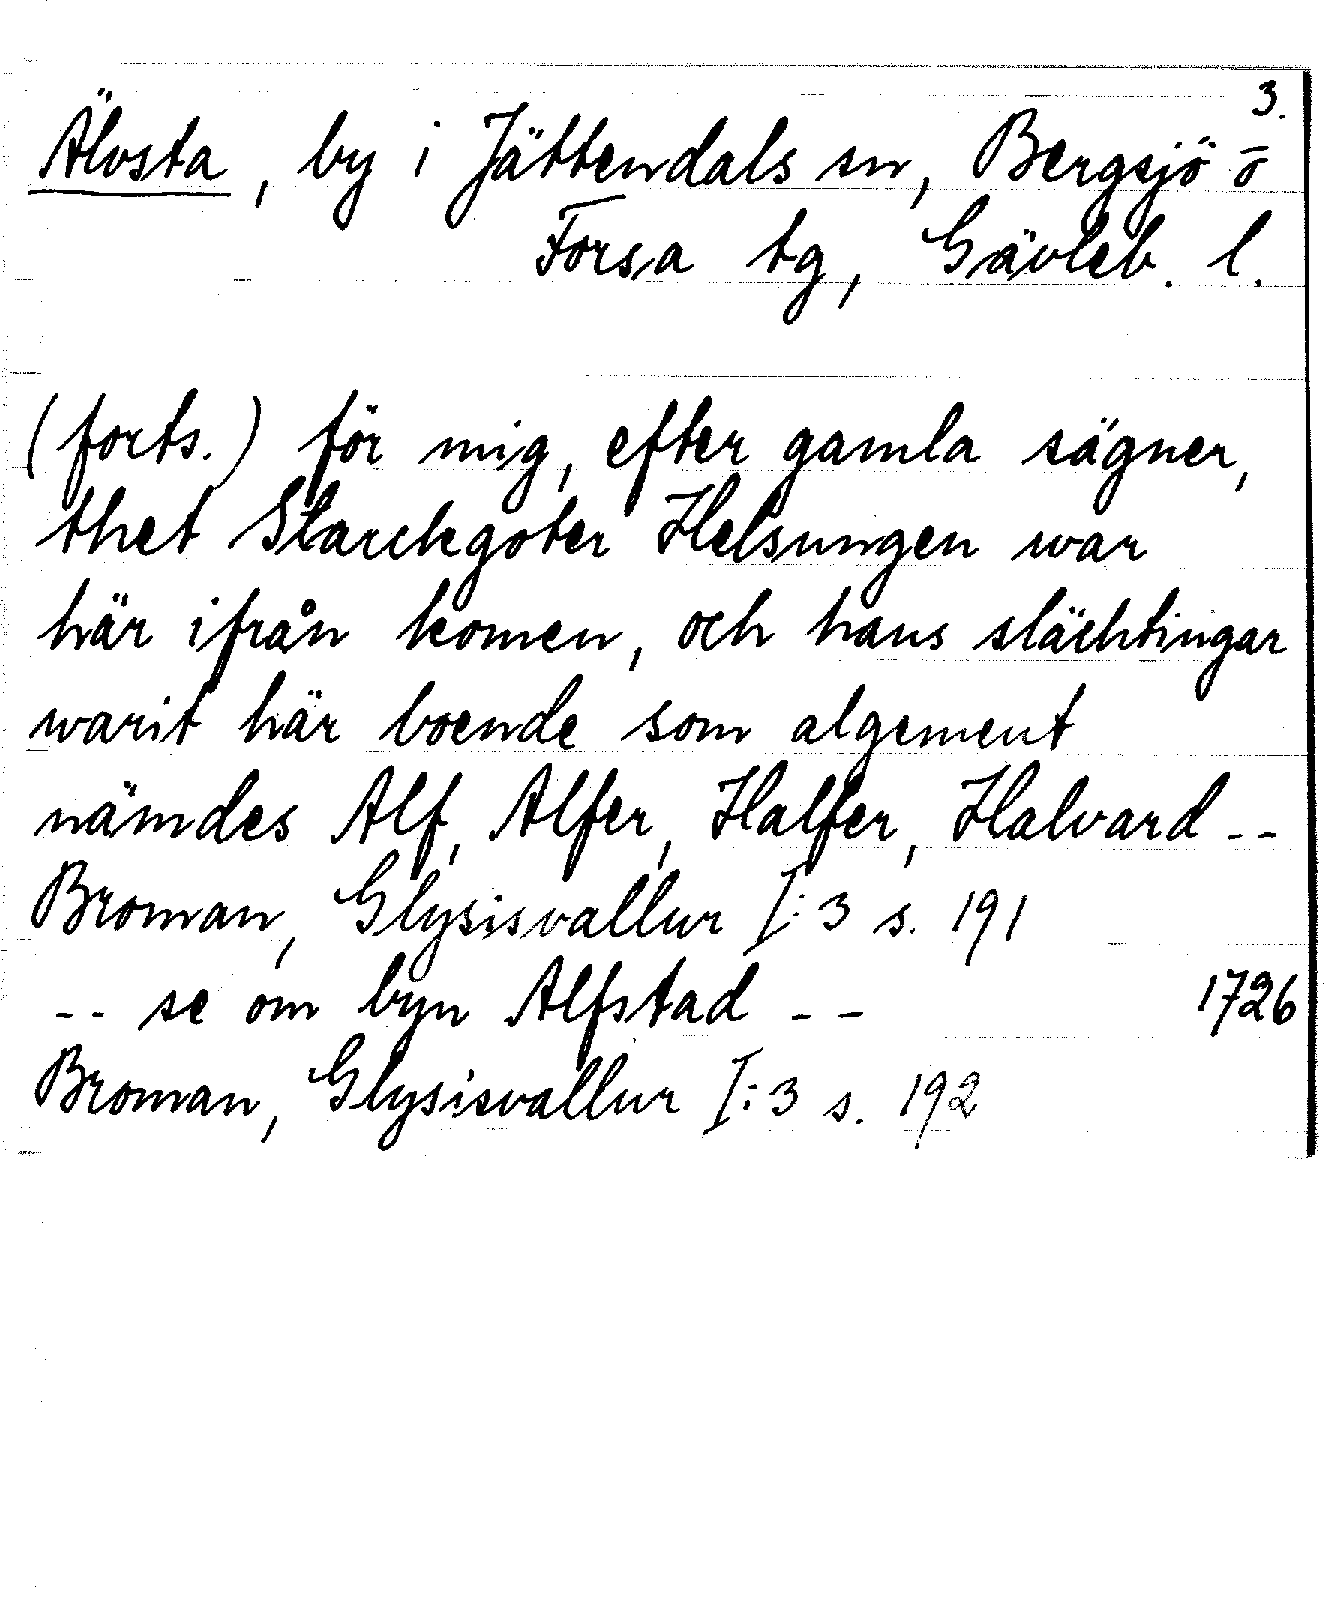 3.
Älvsta, by i Jättendals sn, Bergsjö o
Forsa tg, Gävleb. l.
(forts.) för mig, efter gamla sägner,
thet Starckgoter Helsungen war
här ifrån komen, och hans slächtingar
warit här boende som algement
nämdes Alf, Alfer, Halfer, Halvard --
Broman, Glysisvallur I:3 s. 191
-- se om byn Alfstad -- 1726
Broman, Glysisvallur I:3 s. 192